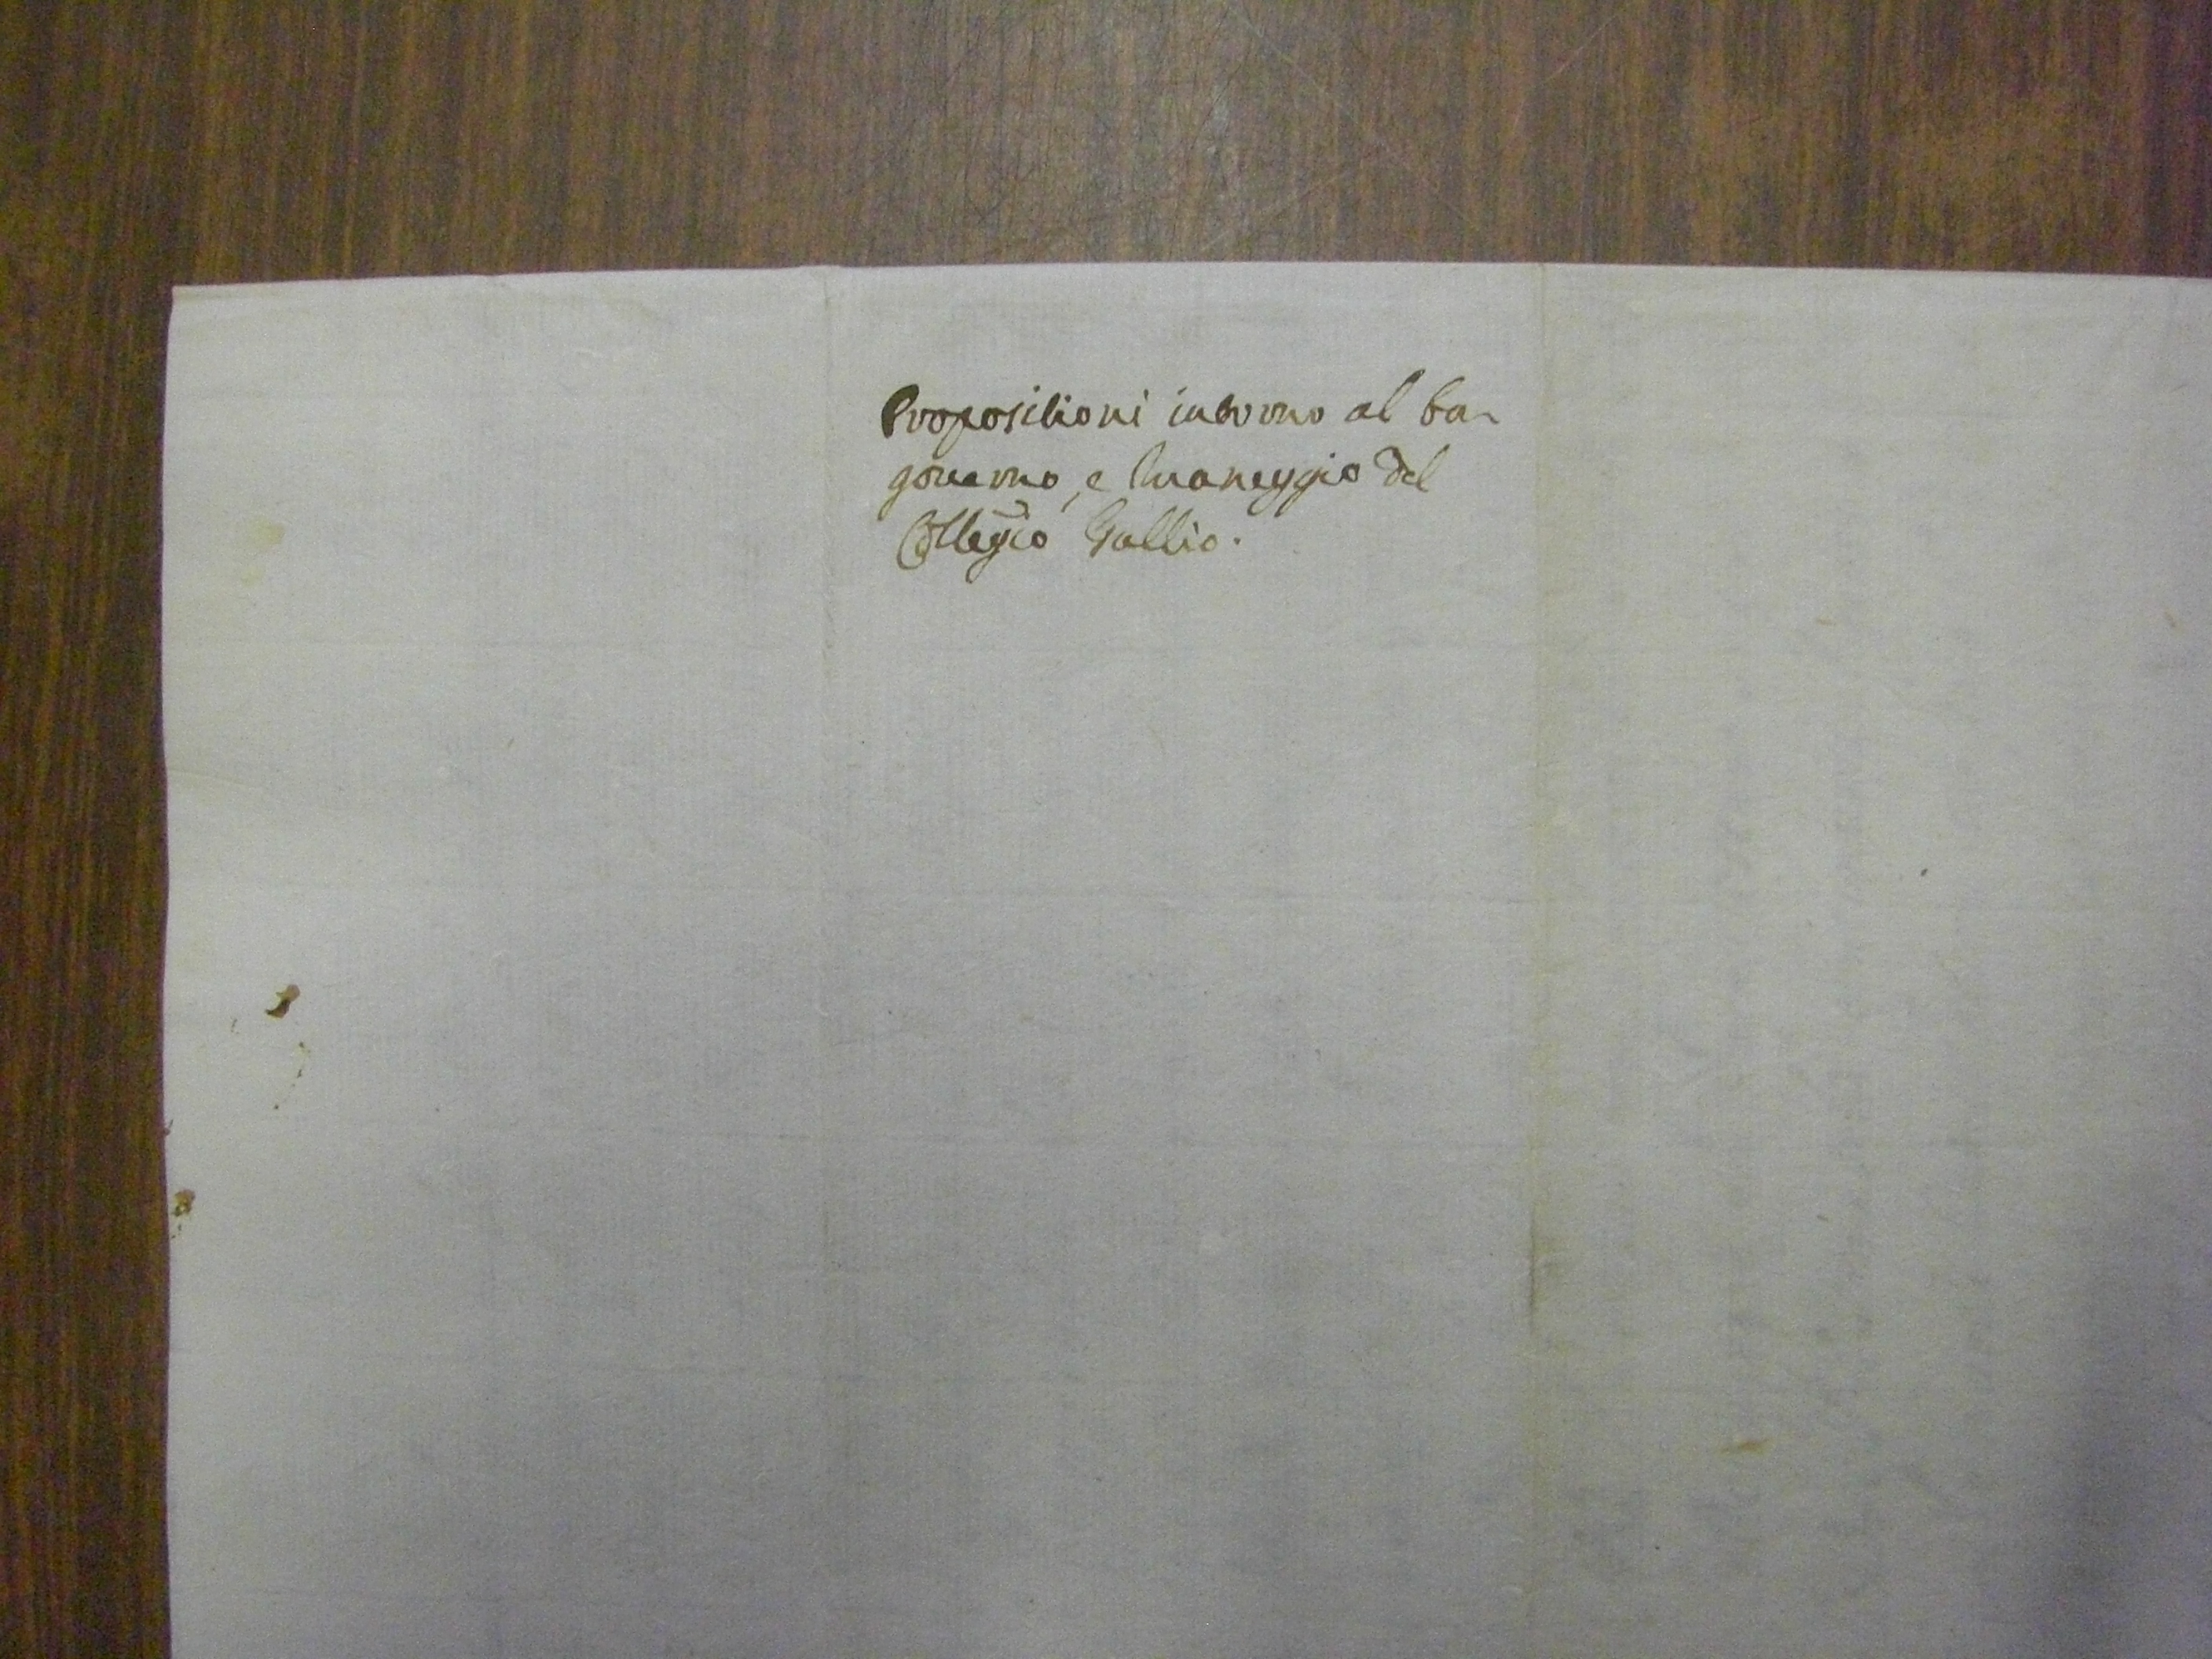 Propositioni intorno al bu-
gouerno, e maneggio del
Collegio Gallio.